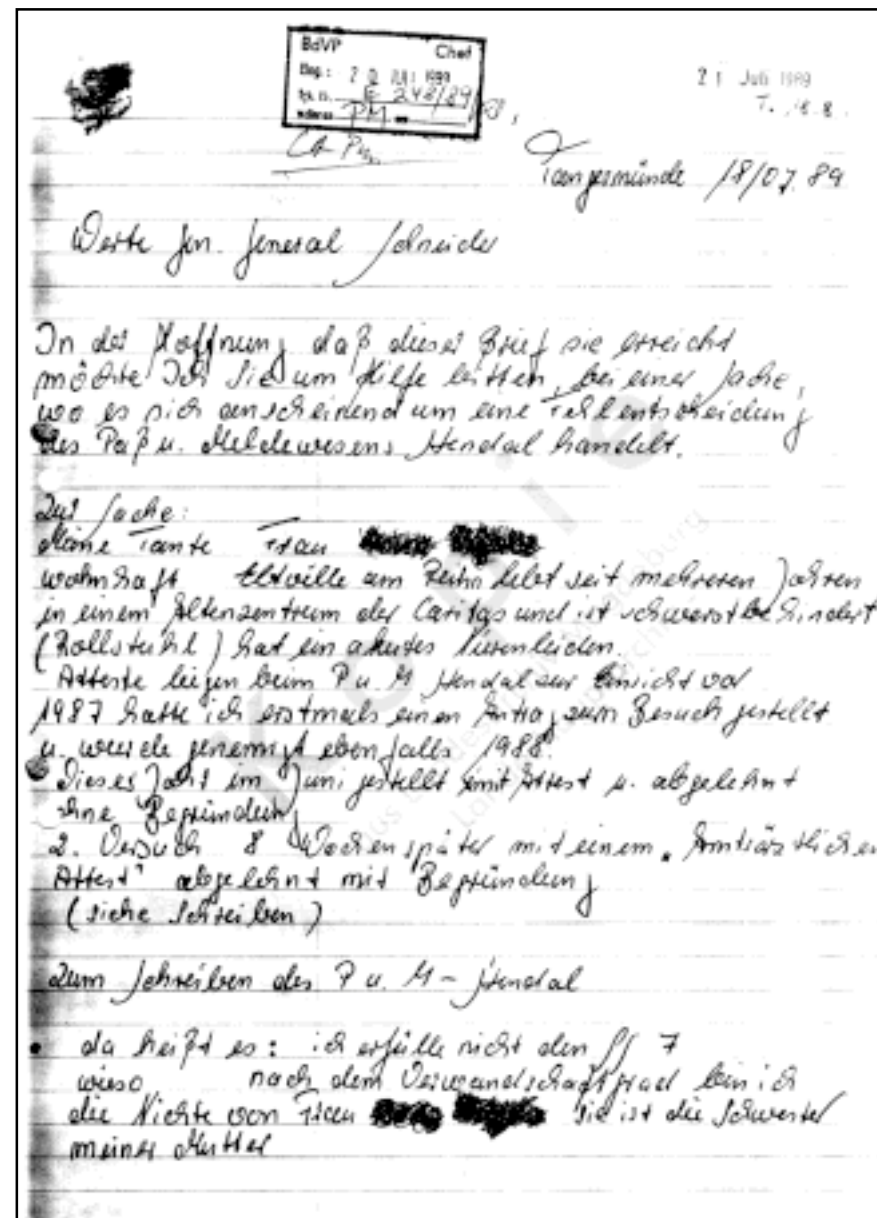 BdVP Chef
Eing.: 20. JULI 1989
E 248/89
PM
21. Juli 1989
T. 18.8.
Tangermünde 18/07.89
Werte Gen. General Schneider
In der Hoffnung daß dieser Brief sie erreicht
möchte Ich Sie um Hilfe bitten, bei einer Sache,
wo es sich anscheinend um eine Fehlentscheidung
des Paß u. Meldewesens Stendal handelt.
Zur Sache:
Meine Tante Frau
wohnhaft Eltville am Rhein lebt seit mehreren Jahren
in einem Altenzentrum der Caritas und ist schwerstbehindert
(Rollstuhl) hat ein akutes Nierenleiden.
Atteste liegen beim P u. M Stendal zur Einsicht vor
1987 hatte ich erstmals einen Antrag zum Besuch gestellt
u. wurde genemigt ebenfalls 1988.
Dieses Jahr im Juni gestellt mit Attest u. abgelehnt
ohne Begründung
2. Versuch 8 Wochen später mit einem "Amtsärztlichen
Attest" abgelehnt mit Begründung
(siehe Schreiben)
Zum Schreiben des P u. M - Stendal
da heißt es: ich erfülle nicht den §§ 7
wieso nach dem Verwandschaftsgrad bin ich
die Nichte von Frau sie ist die Schwester
meiner Mutter
Kopie